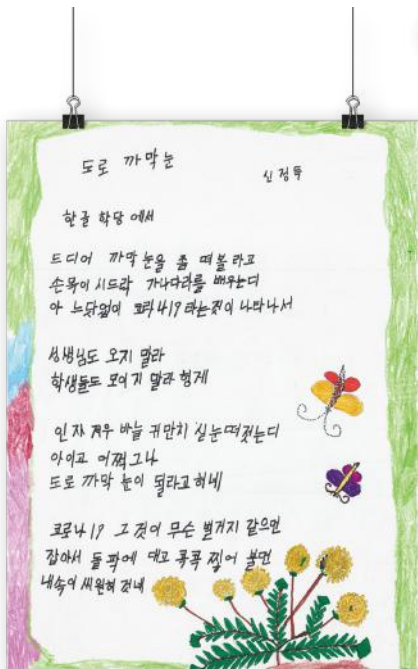 도로 까막눈
신정득
한글 학당에서
드디어 까막눈을 좀 떠볼라고
손목이 시드락 가나다라를 배우는디
아 느닷없이 코로나19 라는것이 나타나서
선생님도 오지 말라
학생들도 모이지 말라 헝게
인자 겨우 바늘 귀만치 실눈떠젓는디
아이고 어쩌그나
도로 까막 눈이 될라고 허네
코로나19 그것이 무슨 벌거지 같으면
잡아서 돌팍에 대고 콕콕 찧어 불면
내속이 씨원허 것네